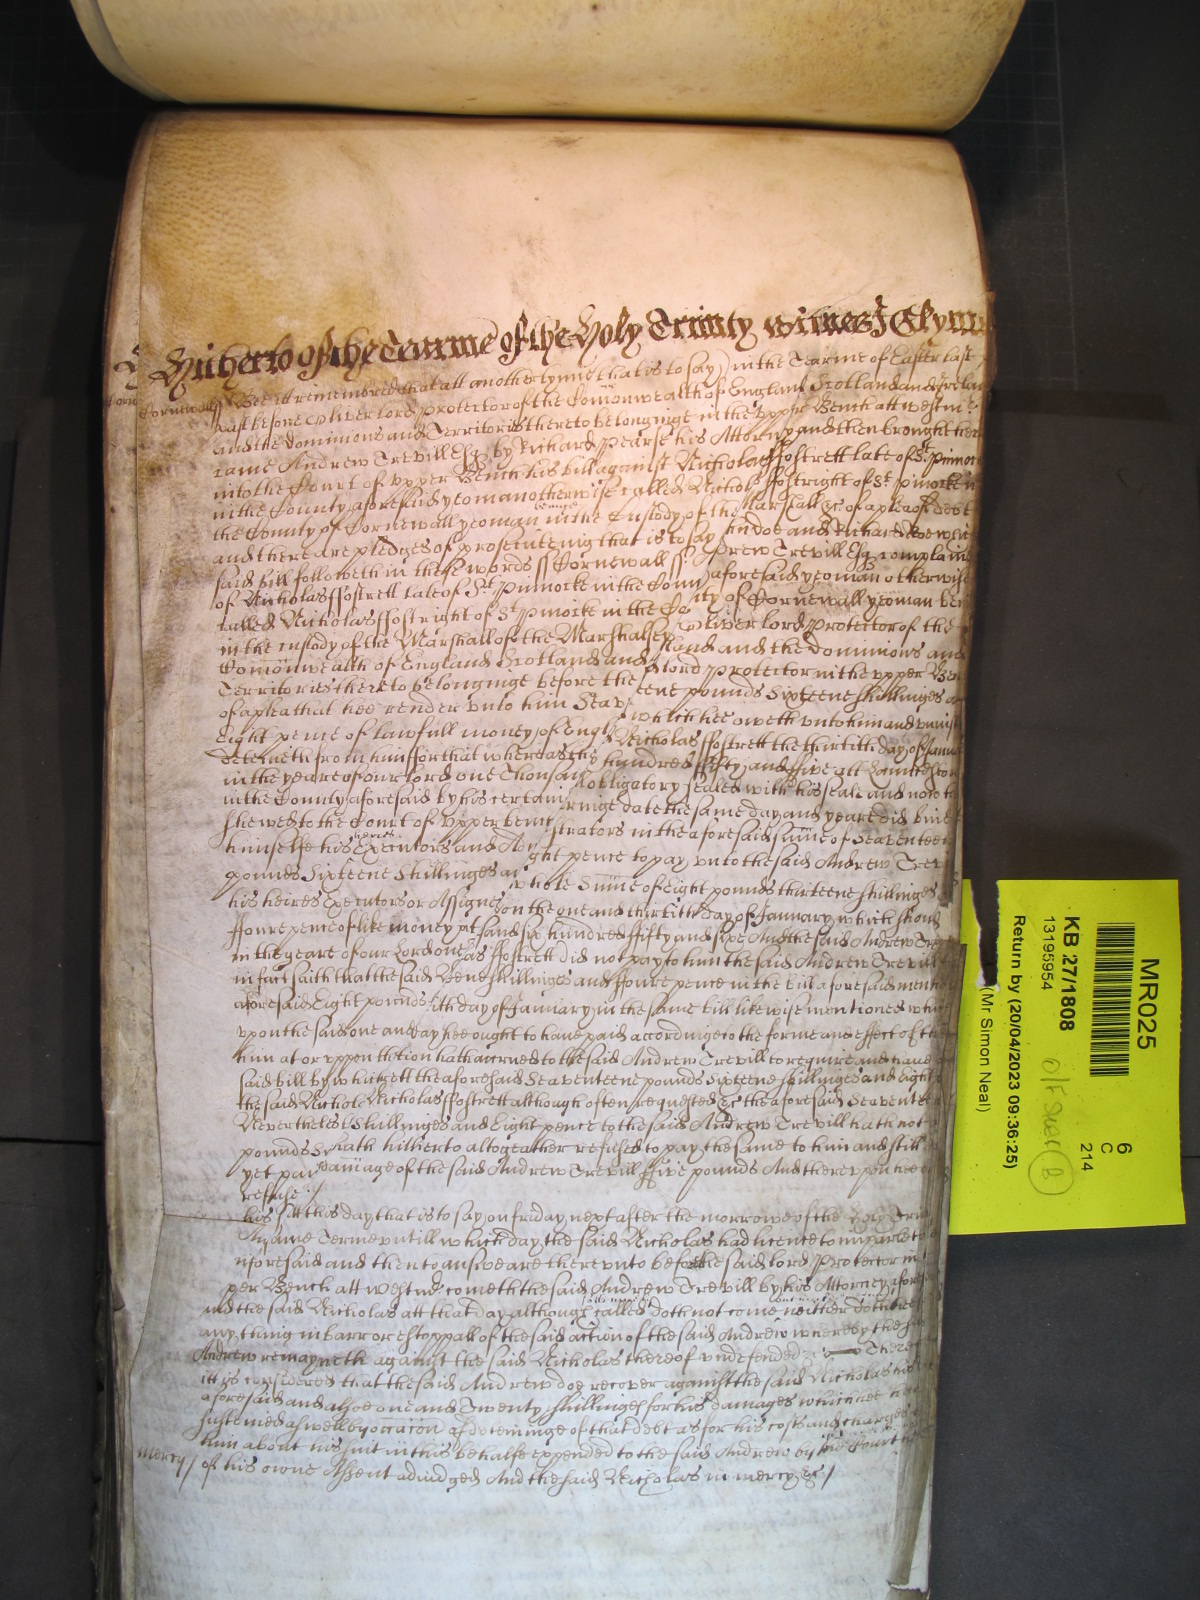 Hitherto of the Tearme of the Holy Trinity Witnes J Glynn
Cornewall ss Bee it remembred that att another tyme that is to say in the Tearme of Easter last
past before Oliver lord protector of the Comonwealth of England Scotland and Irelan
and the dominions and Territories thereto belonginge in the upper Bench att westmr
came Andrew Trevill Esqr by Richard Pearse his Attorny and then brought here
into the Court of upper Bench his bill against Nicholas ffostrett late of St Pinnock
in the County aforesaid yeoman otherwise called Nichols ffostright of St pinocke in
the County of Cornewall yeoman beinge in the Custody of the Marshall &c of a plea of debt
and there are pledges of prosecuteinge that is to say John doe and Richard Roe which
said bill followeth in these words ss Cornewall ss Andrew Trevill Esqr complaineth
of Nicholas ffostrett late of St Pinnocke in the Coun aforesaid yeoman otherwise
called Nicholas ffostright of St Pinocke in the Co nty of Cornewall yeoman bei
in the custody of the Marshall of the Marshalsey Oliver lord Protector of the
Comonwealth of England Scotland and land and the dominions and
Territories thereto belonginge before the lord Protector in the upper Ben
of a plea that hee render unto him Seav teene pounds Sixteene shillinges an
Eight pence of lawfull money of Engl which hee oweth unto him and uniust
deteineth from him ffor that whereas the Nicholas ffostrett the thirtith day of Janu
in the yeare of our lord one Thousan hundred ffifty and ffive att Launceston
in the County aforesaid by his certain obligatory sealed with his seale and now to
shewed to the Court of upper Benc ringe date the same day and yeare did bind
himselfe his heires Executors and Ad strators in the aforesaid sume of Seaventeen
pounds Sixteene Shillinges an ght pence to pay unto the said Andrew Trev
his heires Executors or Assignes whole Sume of Eight pounds thirteene shillinges
ffoure pence of like money att on the one and thirtith day of January which should
in the yeare of our Lord one and six hundred ffifty and sixe And the said Andrew Tre
in fact saith that the said as ffostrett did not pay to him the said Andrew Trevill
aforesaid Eight pounds teene shillinges and ffoure pence in the bill aforesaid mentio
upon the said one and ith day of January in the same bill likewise mentioned which
him at or uppon day hee ought to have paid accordinge to the forme and effect of the
said bill by which ction hath accrued to the said Andrew Trevill to require and have of
the said Nichol gett the aforesaid Seaventeene pounds Sixteene shillinges and Eight
Neverthelest Nicholas ffostrett although often requested &c the aforesaid Seavente
pounds S Shillinges and Eight pence to the said Andrew Trevill hath not
yet pai hath hitherto altogeather refused to pay the same to him and still
refuse damage of the said Andrew Trevill ffive pounds And thereupon hee
his suit &c
this day that is to say on friday next after the morrowe of the Holy Trin
same Terme untill which day the said Nicholas had licence to imparle to
aforesaid and then to answeare thereunto before the said lord Protector in
per Bench att westmr cometh the said Andrew Trevill by his Attorney afore
And the said Nicholas att that day although called doth not come neither doth hee
any thing in barr or estoppall of the said action of the said Andrew whereby the sa
Andrew remayneth against the said Nicholas thereof undefended There
itt is considered that the said Andrew doe recover against the said Nicholas his
aforesaid and alsoe one and Twenty shillinges for his damages which hee ha
susteined aswell by occacon of deteininge of that debt as for his costs and charges
him about his suit in this behalfe expended to the said Andrew by the Court
mercy / of his owne Assent adiudged And the said Nicholas in mercy &c /
MR025
KB 27/1808
13195954
Return by (20/04/2023 09:36:25)
(Mr Simon Neal)
6
C
214